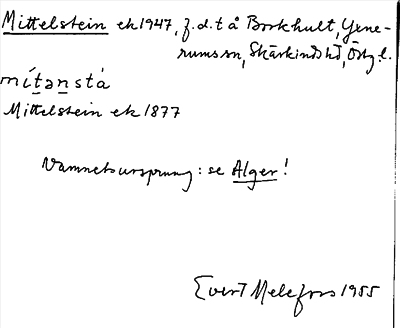 Mittelstein ek 1947, f.d.t å Borkhult, Yxne-
rums sn, Skärkinds hd, Östg. l.
mítanstá
Mittelstein ek 1877
Namnets ursprung: se Alger!
Evert Melefors 1955